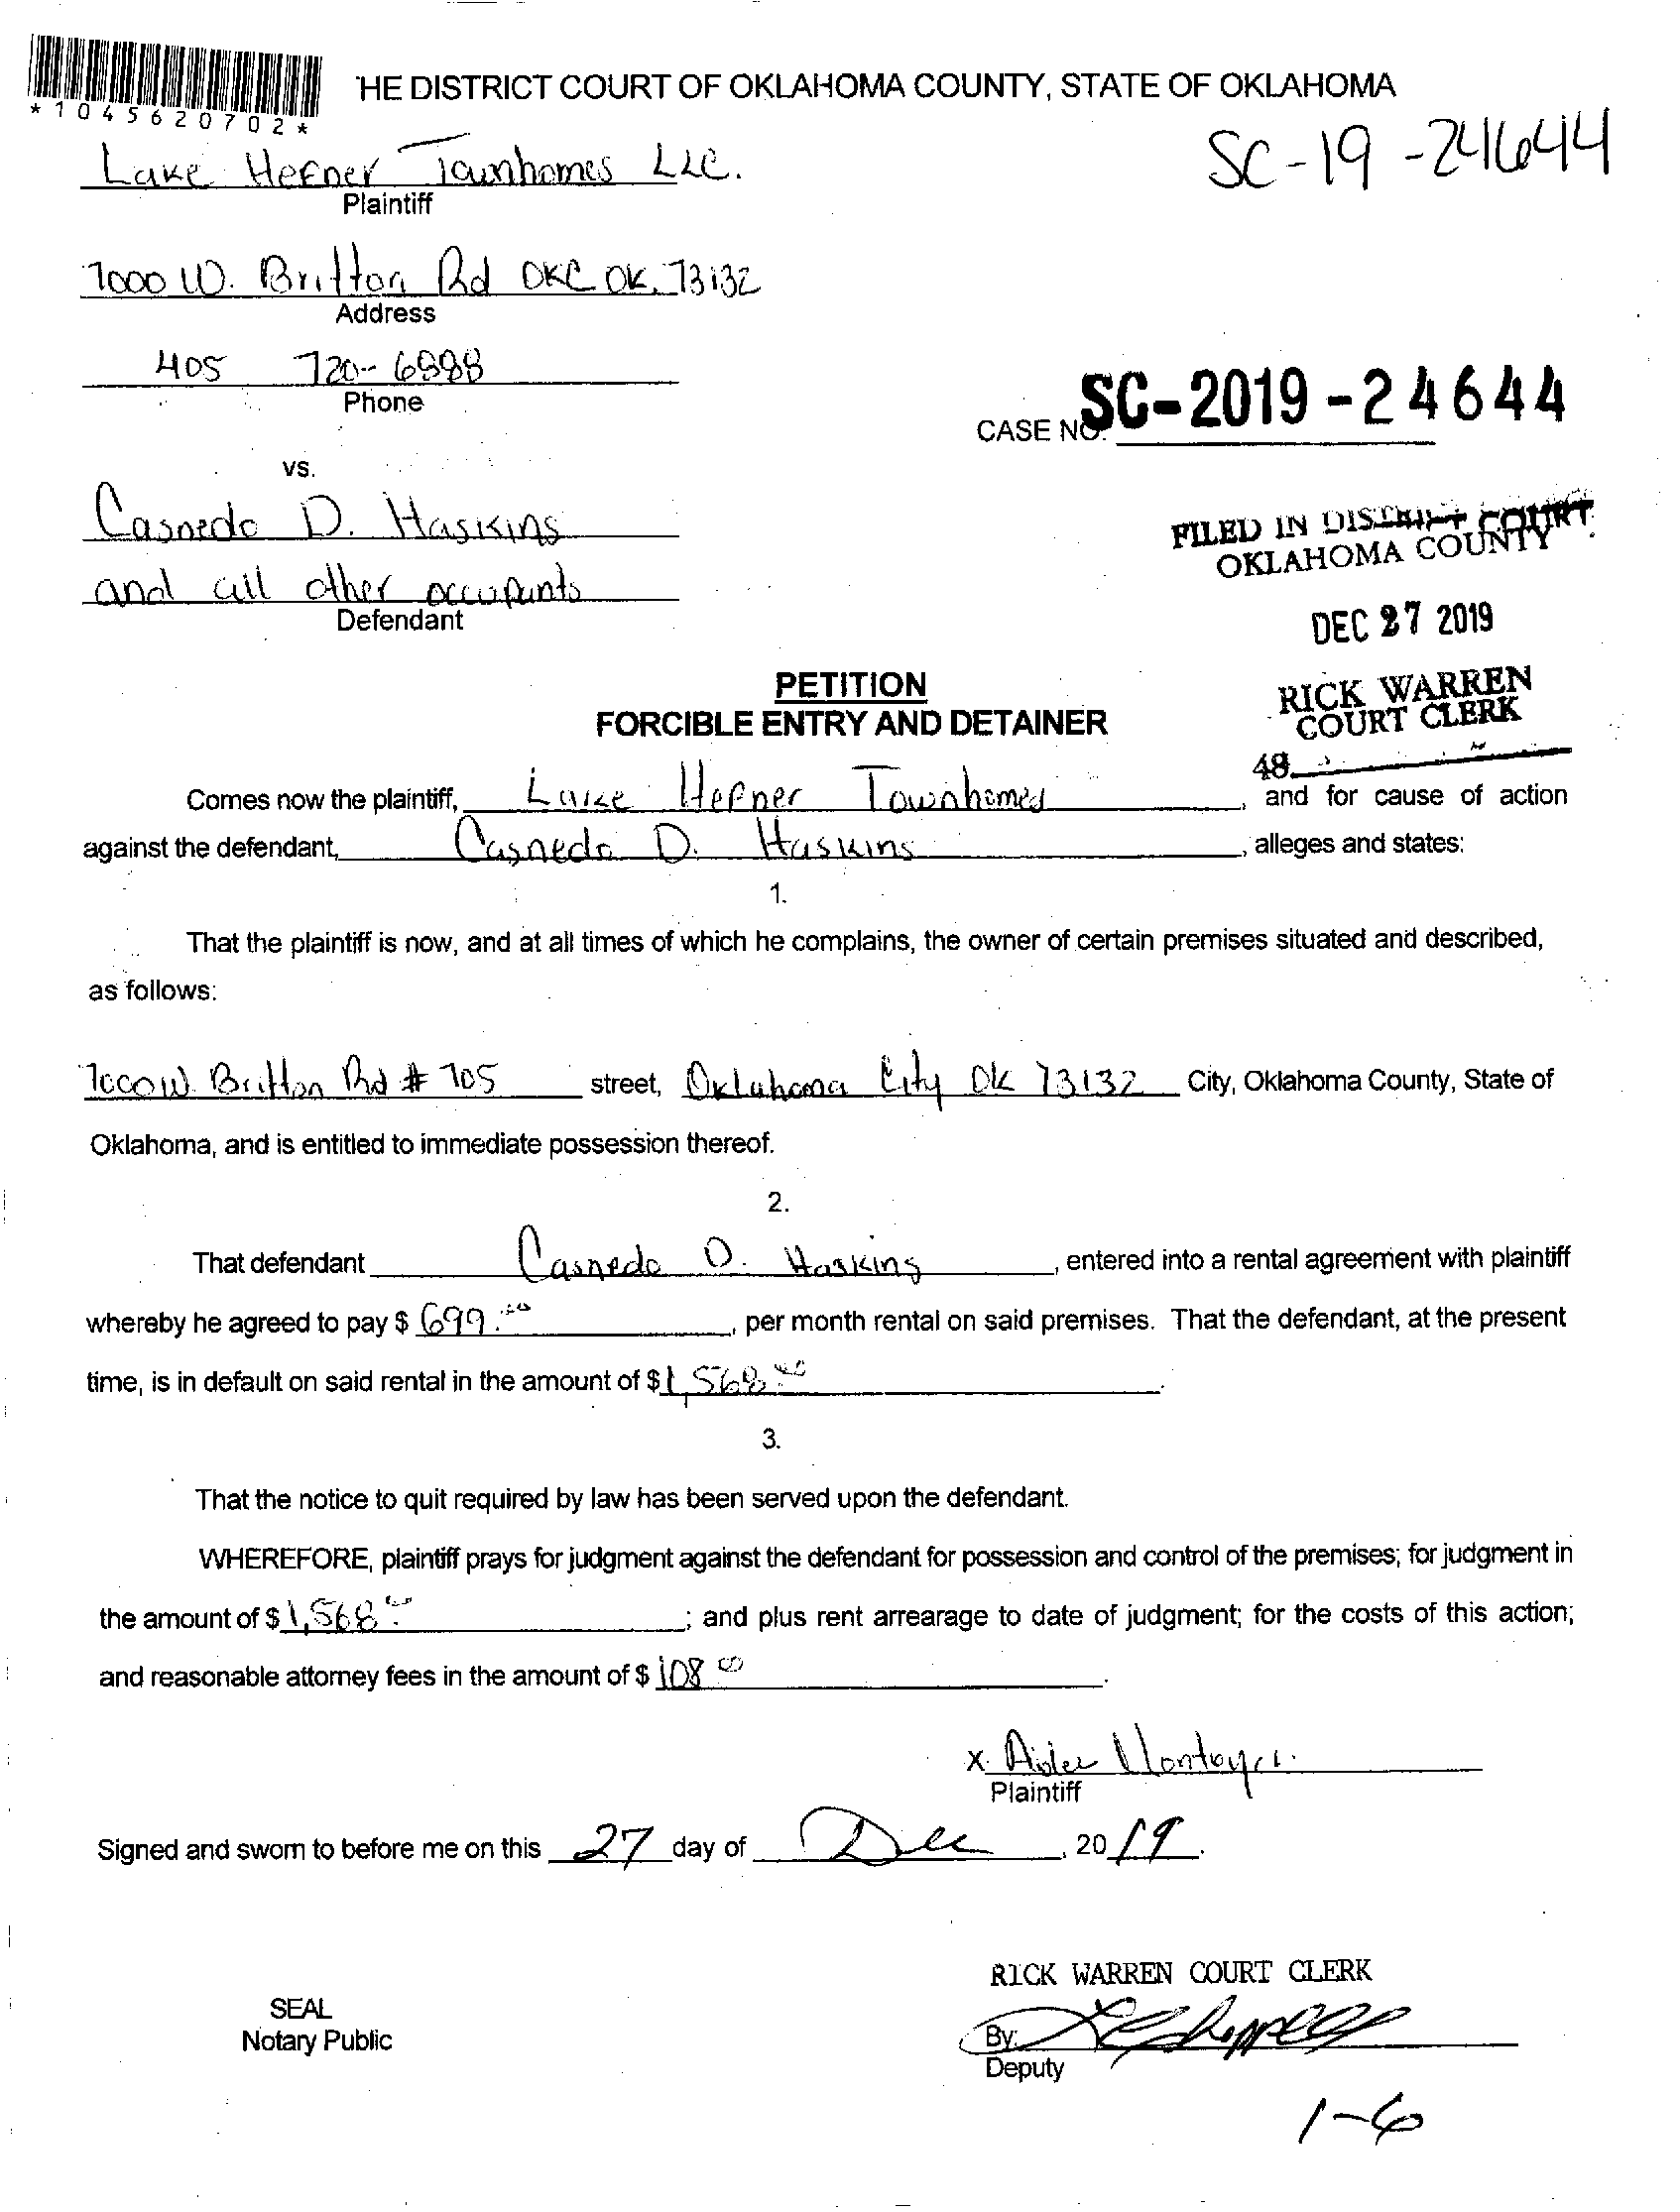 *1045620702*
HE DISTRICT COURT OF OKLAHOMA COUNTY, STATE OF OKLAHOMA
SC-19-24644
Lake Hefner Townhomes LLC.
Plaintiff
7000 W. Britton Rd OKC OK. 73132
Address
405 720-6888
Phone
CASE NO. SC-2019-24644
vs.
Casnedo D. Haskins
and all other occupants
Defendant
FILED IN DISTRICT COURT
OKLAHOMA COUNTY
DEC 27 2019
RICK WARREN
COURT CLERK
48
PETITION
FORCIBLE ENTRY AND DETAINER
Comes now the plaintiff, Lake Hefner Townhomes, and for cause of action
against the defendant, Casnedo D. Haskins, alleges and states:
1.
That the plaintiff is now, and at all times of which he complains, the owner of certain premises situated and described,
as follows:
7000 W. Britton Rd # 705 street, Oklahoma City OK 73132 City, Oklahoma County, State of
Oklahoma, and is entitled to immediate possession thereof.
2.
That defendant Casnedo D. Haskins, entered into a rental agreement with plaintiff
whereby he agreed to pay $ 699.00, per month rental on said premises. That the defendant, at the present
time, is in default on said rental in the amount of $ 1,568.00.
3.
That the notice to quit required by law has been served upon the defendant.
WHEREFORE, plaintiff prays for judgment against the defendant for possession and control of the premises; for judgment in
the amount of $ 1,568.00; and plus rent arrearage to date of judgment; for the costs of this action;
and reasonable attorney fees in the amount of $ 108 00.
x. Montoya
Plaintiff
Signed and sworn to before me on this 27 day of Dec, 20 19.
RICK WARREN COURT CLERK
SEAL
Notary Public
By:
Deputy
1-6